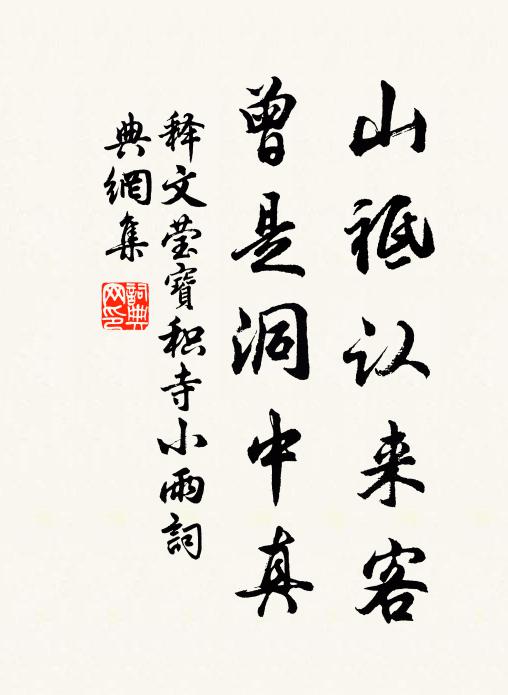 山祗认来客
曾是洞中真
释文莹寶积寺小雨詞
典網集
詞典
网印